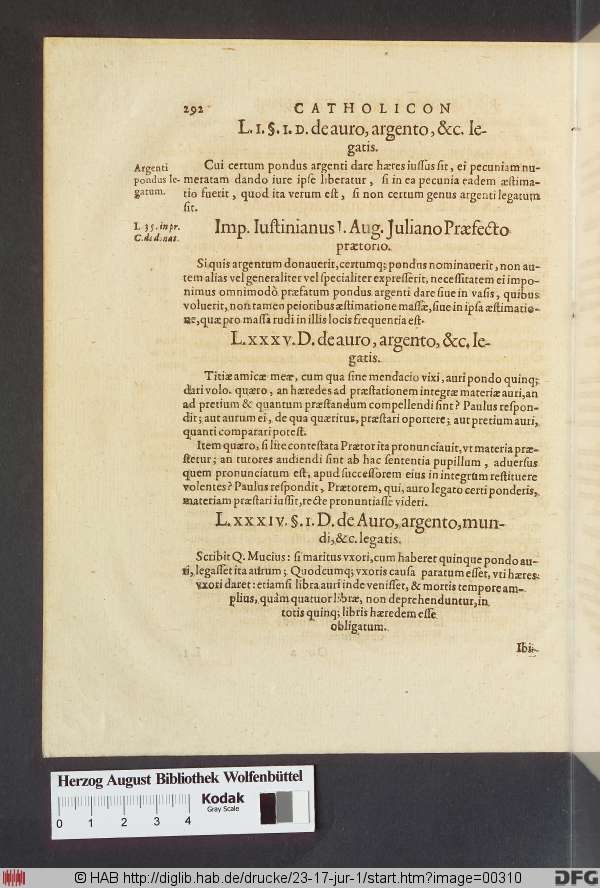 292 CATHOLICON
L. I. §. I. D. de auro, argento, &c. le-
gatis.
Argenti
pondus le-
gatum.
Cui certum pondus argenti dare hæres iussus sit, ei pecuniam nu-
meratam dando iure ipse liberatur, si in ea pecunia eadem æstima-
tio fuerit, quod ita verum est, si non certum genus argenti legatum
sit.
l. 35. in pr.
C. de donat.
Imp. Iustinianus 1. Aug. Juliano Præfecto
prætorio.
Si quis argentum donauerit, certumq; pondus nominauerit, non au-
tem alias vel generaliter vel specialiter expresserit, necessitatem ei impo-
nimus omnimodò præfatum pondus argenti dare siue in vasis, quibus
voluerit, non tamen peioribus æstimatione massæ, siue in ipsa æstimatio-
ne, quæ pro massa rudi in illis locis frequentia est.
L. XXXV. D. de auro, argento, &c. le-
gatis.
Titiæ amicæ meæ, cum qua sine mendacio vixi, auri pondo quinq;
dari volo. quæro, an hæredes ad præstationem integræ materiæ auri, an
ad pretium & quantum præstandum compellendi sint? Paulus respon-
dit; aut aurum ei, de qua quæritur, præstari oportere; aut pretium auri,
quanti comparari potest.
Item quæro, si lite contestata Prætor ita pronunciauit, vt materia præ-
stetur; an tutores audiendi sint ab hac sententia pupillum, aduersus
quem pronunciatum est, apud successorem eius in integrum restituere
volentes? Paulus respondit, Prætorem, qui, auro legato certi ponderis,
materiam præstari iussit, recte pronuntiasse videri.
L. XXXIV. §. I. D. de Auro, argento, mun-
di, &c. legatis.
Scribit Q. Mucius: si maritus vxori, cum haberet quinque pondo au-
ri, legasset ita aurum; Quodcumq; vxoris causa paratum esset, vti hæres
vxori daret: etiamsi libra auri inde venisset, & mortis tempore am-
plius, quàm quatuor libræ, non deprehenduntur, in
totis quinq; libris hæredem esse
obligatum.
Ibi-
Herzog August Bibliothek Wolfenbüttel
0 1 2 3 4
Kodak
Gray Scale
© HAB http://diglib.hab.de/drucke/23-17-jur-1/start.htm?image=00310
DFG